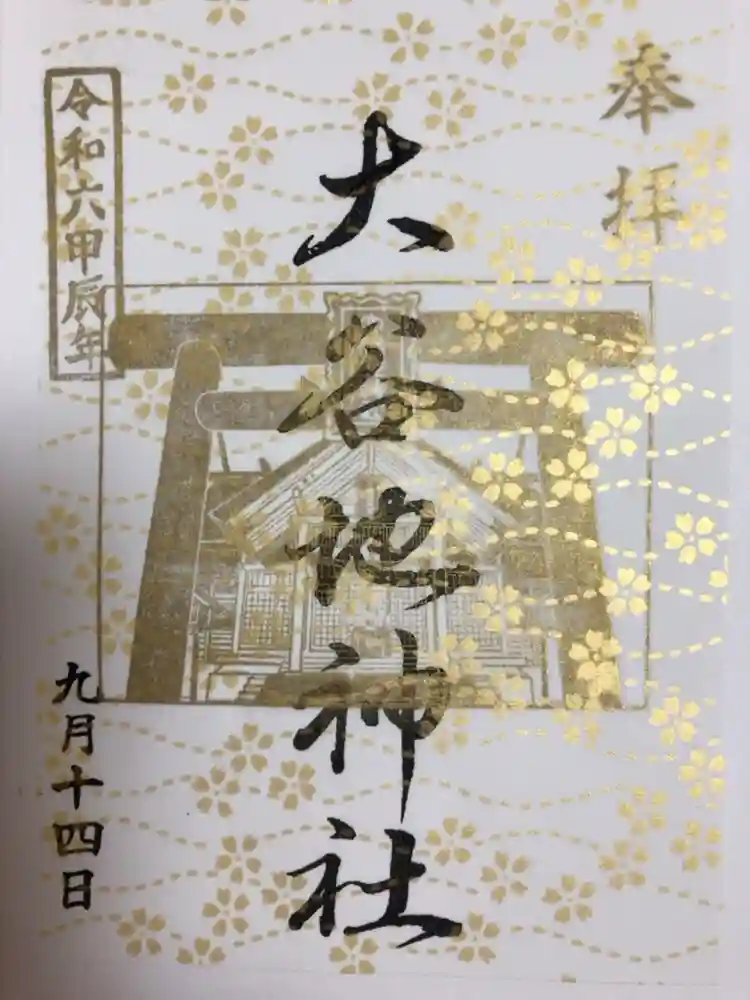 奉拝
大谷地神社
令和六甲辰年
九月十四日